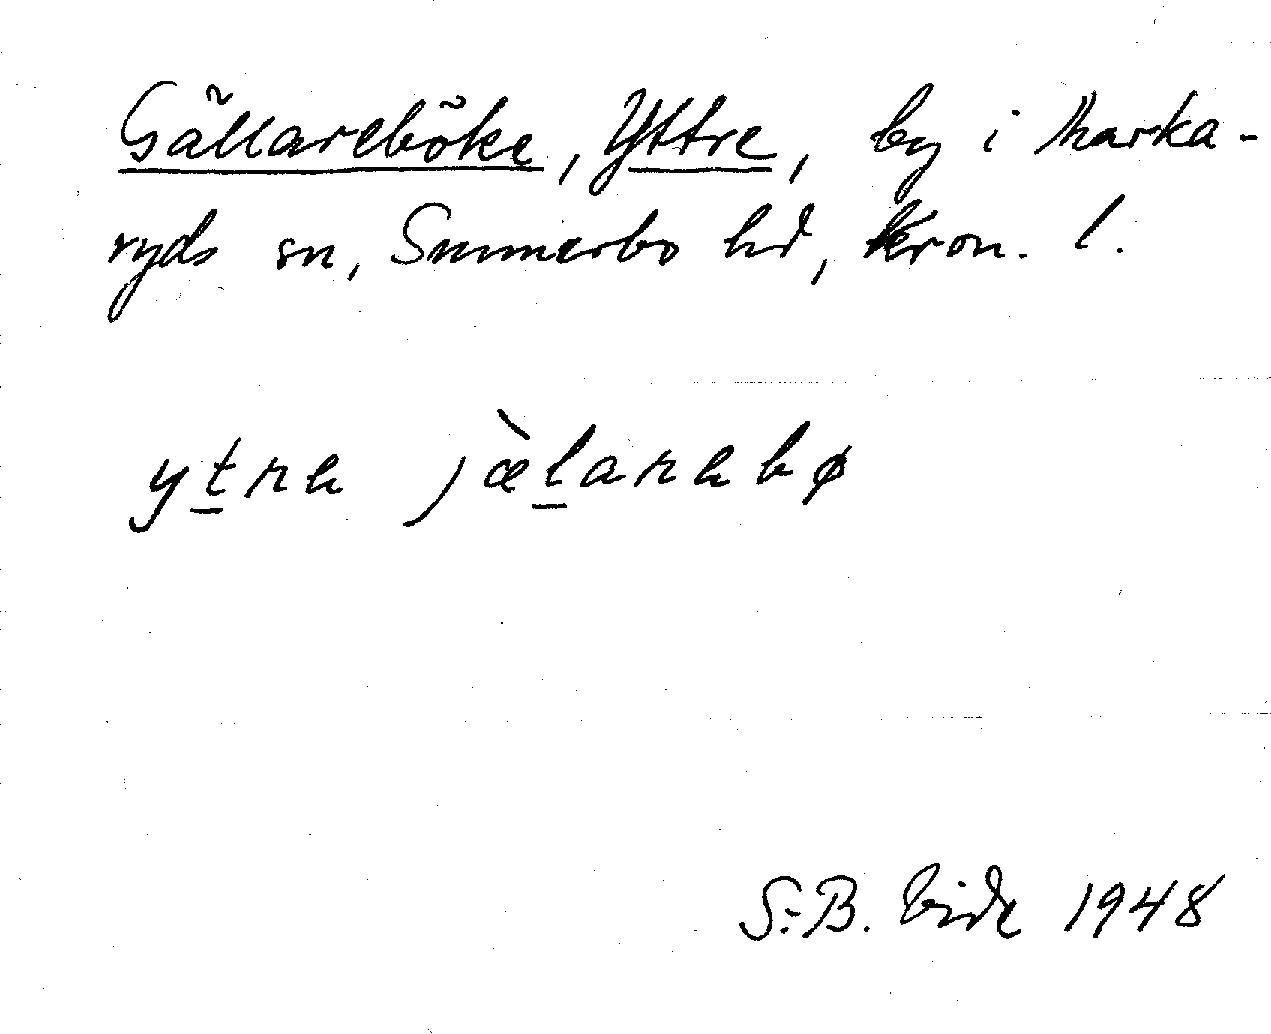 Gällareböke, Yttre, by i Marka-
ryds sn, Sunnerbo hd, Kron. l.
ytra jælarabø
S.-B. Vide 1948